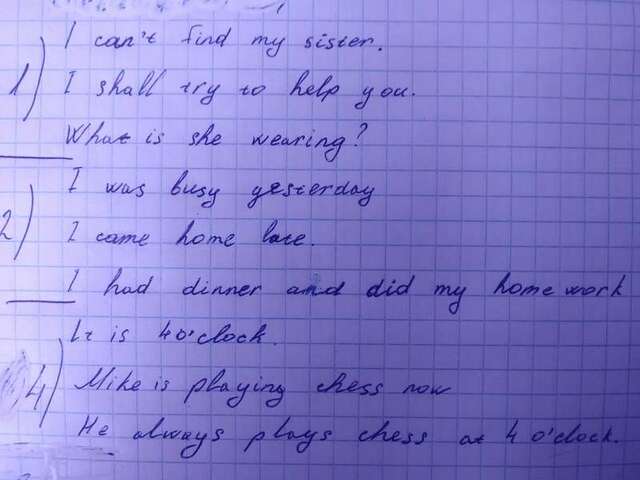 I can't find my sister.
1) I shall try to help you.
What is she wearing?
I was busy yesterday
2) I came home late.
I had dinner and did my home work
It is 4 o'clock.
4) Mike is playing chess now
He always plays chess at 4 o'clock.